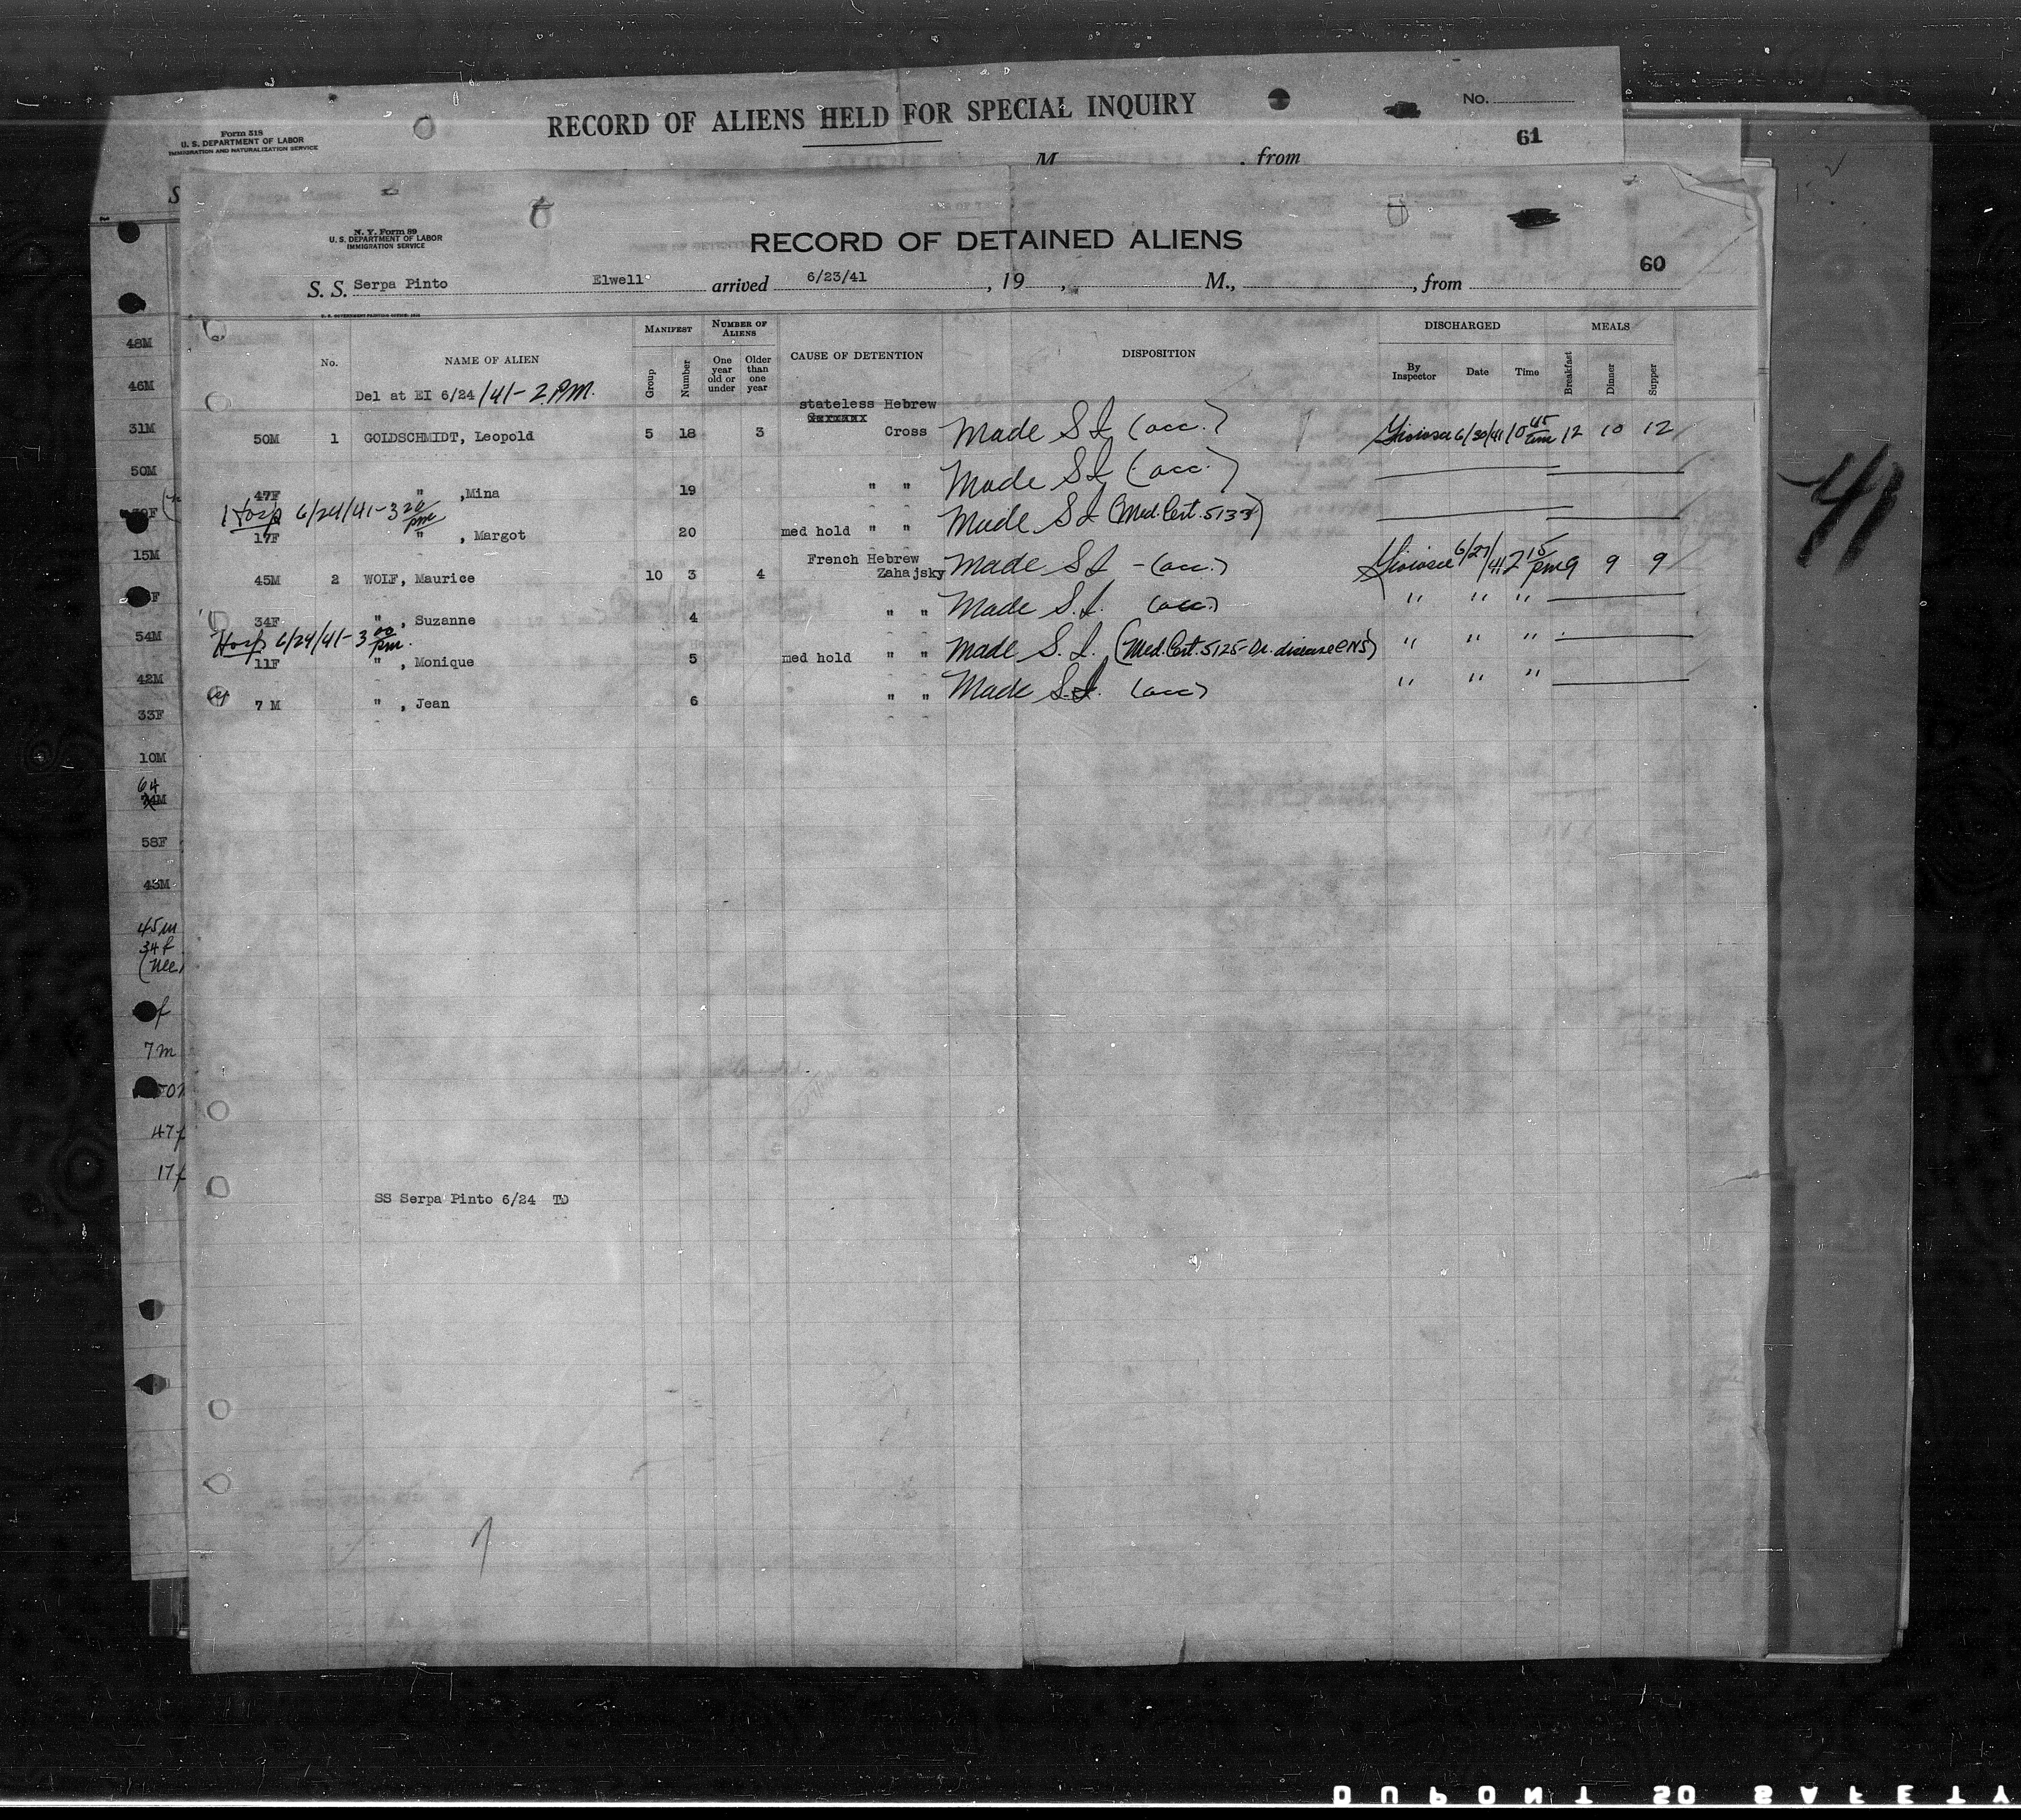 Form 518
U. S. DEPARTMENT OF LABOR
IMMIGRATION AND NATURALIZATION SERVICE
RECORD OF ALIENS HELD FOR SPECIAL INQUIRY
No.
61
S
M
, from
N. Y. Form 89
U. S. DEPARTMENT OF LABOR
IMMIGRATION SERVICE
RECORD OF DETAINED ALIENS
60
S. S. Serpa Pinto Elwell arrived 6/23/41, 19 , M., , from
No. NAME OF ALIEN MANIFEST Group Number NUMBER OF ALIENS One year old or under Older than one year CAUSE OF DETENTION DISPOSITION DISCHARGED By Inspector Date Time MEALS Breakfast Dinner Supper
Del at EI 6/24/41-2 P.M.
stateless Hebrew
50M 1 GOLDSCHMIDT, Leopold 5 18 3 Cross Made S I (acc.) 6/30/41 10 45 12 10 12
47F " ,Mina 19 " " Made S I (acc.)
Hosp 6/24/41-3 20 pm
17F " , Margot 20 med hold " " Made S I (Med. Cert. 5133)
French Hebrew
45M 2 WOLF, Maurice 10 3 4 Zahajsky Made S I - (acc.) 6/27/41 2 15 pm 9 9 9
34F " , Suzanne 4 " " Made S.I. (acc.) " " "
Hosp 6/24/41-3 00 pm.
11F " , Monique 5 med hold " " Made S. I. (Med. Cert. 5125- " " "
7 M " , Jean 6 " " Made S.I. (acc) " " "
SS Serpa Pinto 6/24 TD
48M
46M
31M
50M
15M
54M
42M
33F
10M
64
58F
43M
45m
34f
7m
47f
17f
41
DUPONT SAFETY